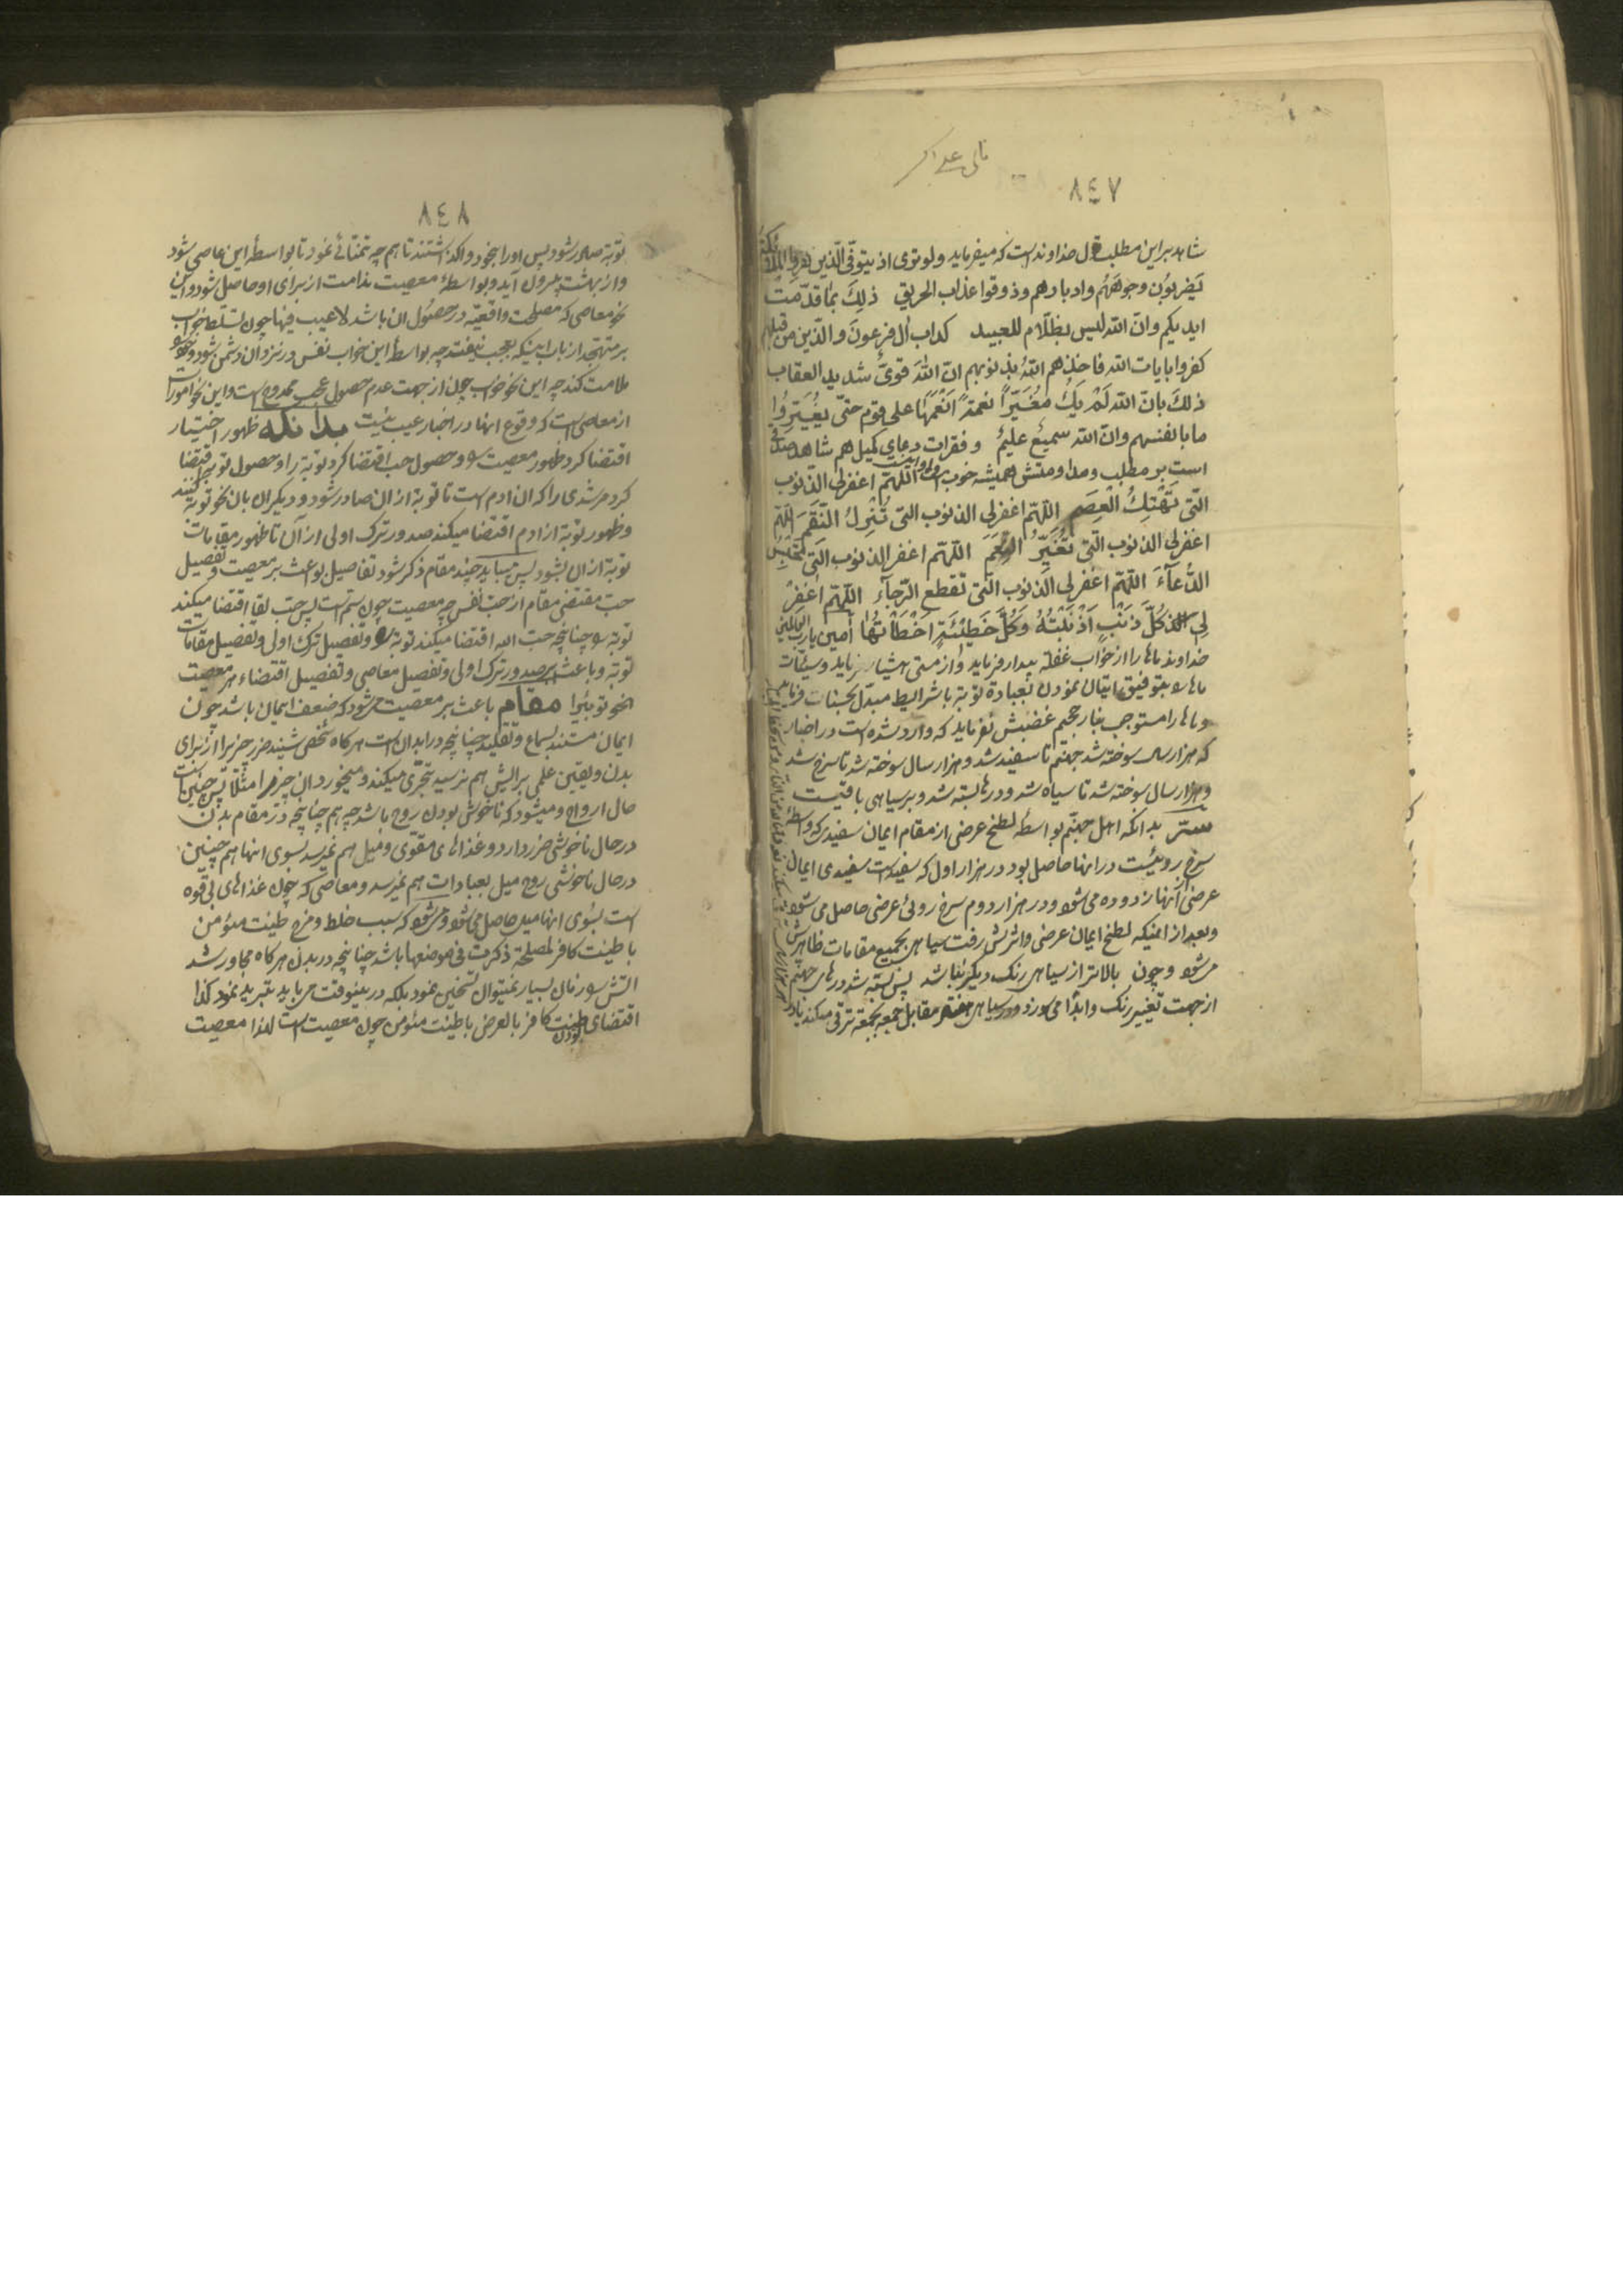 ٨٤٧
شاهد بر این مطلب قول خداوند است که میفرماید ولو تری اذ یتوفی الذین کفروا الملئکة
یَضربُون وجوههُم وادبارهم وذوقوا عذاب الحریق ذلِکَ بمٰا قدّمت
ایدیکم وانّ الله لیس بظلّام للعبید کداب اٰل فرعونَ والذّین من قبلهم
کفروا بایات الله فاخذهم اللهُ بذنوبهم انّ اللهَ قویٌّ شدید العقاب
ذلکَ بانّ الله لَمْ یَکُ مُغَیّراً نعمةً اَنْعَمَهٰا علی قوم حتّی یُغَیّرُوا
ما بانفسهم وانّ الله سمیعٌ علیمٌ و فقرات دعای کمیل هم شاهد صادقی
است بر مطلب و مداومتش همیشه خوب اللّهمّ اغفر لی الذّنوب
الّتی تَهْتِكُ الْعِصَم اللّهمّ اغفر لی الذنوب التی تُنْزِلُ النّقَمَ اللّهمّ
اغفر لی الذنوب الّتی تُغَیّرُ النِّعَمَ اللّهمّ اغفر الذنوب الّتی تَحْبِسُ
الدُّعآءَ اللّهمّ اغفر لی الذنوب الّتی تقطع الرّجآءَ اللّهمّ اغفِرْ
لِی کُلَّ ذَنْبٍ اَذْنَبْتُهُ وَكُلَّ خَطٓیئَةٍ اَخْطَأتُهٰا آمین یا ربّ العالمین
خداوند ماها را از خواب غفلة بیدار فرماید و از مستی هشیار نماید و سیّئات
ماها به توفیق اتیان نمودن بعبادة توبة با شرایط مبدّل بحسنات فرماید
و ماها را مستوجب بنار جحیم غضبش نفرماید که وارد شده است در اخبار
که هزار سال سوخته شد جهنّم تا سفید شد و هزار سال سوخته شد تا سرخ شد
و هزار سال سوخته شد تا سیاه شد و درها بسته شد و بر سیاهی باقیست
سرّ بدانکه اهل جهنّم بواسطهٔ لطخ عرضی از مقام ایمان سفیدی که واسطهٔ
سرخ روئیست در انها حاصل بود در هزار اول که سفید است سفیدی ایمان
عرضی از انها زدوده می شود و در هزار دوم سرخ روئی عرضی حاصل می شود
و بعد از اینکه لطخ ایمان عرضی و اثرش رفت سیاهی بجمیع مقامات ظاهرش
می شود و چون بالاتر از سیاهی رنگ دیگر نباشد پس بسته شد درهای جهنم
از جهت تغییر رنگ و ابداً می سوزد و در سیاهی مقابل جمعه بجمعة ترقی میکند
٨٤٨
توبة صادر شود پس او را بخود واگذاشتند تا هم چه تمنّائی نمود تا بواسطهٔ این عاصی شود
و از بهشت بیرون آید و بواسطهٔ معصیت ندامت از برای او حاصل شود و این
نحو معاصی که مصلحت واقعیّه در حصُول ان باشد لاعیب فیها چون تسلّط خواب
بر متهجّد از باب اینکه بعجب نیفتد چه بواسطهٔ این خواب نفس در نزد ان دشمن شود و خود را
ملامت کند چه این نحو خواب چون از جهت عدم حصول عجب ممدوح است و این نحو امورات
از معاصی است که وقوع انها در اخبار عیب نیست بدانکه ظهور اختیار
اقتضا کرد ظهور معصیت و حصول حب اقتضا کرد توبة را و حصول توبه اقتضا
کرد مرشدی را که ان ادم است تا توبة از ان صادر شود و دیگران بان نحو توبة کنند
و ظهور توبة از ادم اقتضا میکند صدور ترک اولی از آن تا ظهور مقامات
توبة از ان بشود پس میباید چند مقام ذکر شود تفاصیل بواعث بر معصیت و تفصیل
حبّ مقتضی مقام از حبّ نفس چه معصیت چون ستم است پس حبّ لقا اقتضا میکند
توبة چنانچه حبّ الله اقتضا میکند توبة و تفصیل ترک اولی و تفصیل مقامات
توبة و باعث بر صدور ترک اولی و تفصیل معاصی و تفصیل اقتضاء هر معصیت
نحو توبة را مقام باعث بر معصیت می شود که ضعف ایمان باشد چون
ایمان مستند بسماع و تقلید چنانچه در ابدان است هر کاه شخصی شنید ضرر چیزیرا از برای
بدن و یقین علمی برایش هم نرسید تجرّی میکند و میخورد ان چیز را مثلا پس چنین است
حال ارواح و میشود که ناخوشی بودن روح باشد چه هم چنانچه در مقام بدن
در حال ناخوشی ضرر دارد و غذاهای مقوّی و میل هم نمیرسد بسوی انها هم چنین
در حال ناخوشی روح میل بعبادات هم نمیرسد و معاصی که چون غذاهای بی قوه
است بسُوی انها میل حاصل می شود و می شود که سبب خلط و مزج طینت مئومن
با طینت کافر لمصلحة ذکرت فی موضعها باشد چنانچه در بدن هر کاه مجاور شد
اتش سوزنان بسیار نمیتوان تسخین نمود بلکه در بعضوقت می باید تبرید نمود کذا
اقتضای بودن طینت کافر بالعرض با طینت مئومن چون معصیت است لهٰذا معصیت